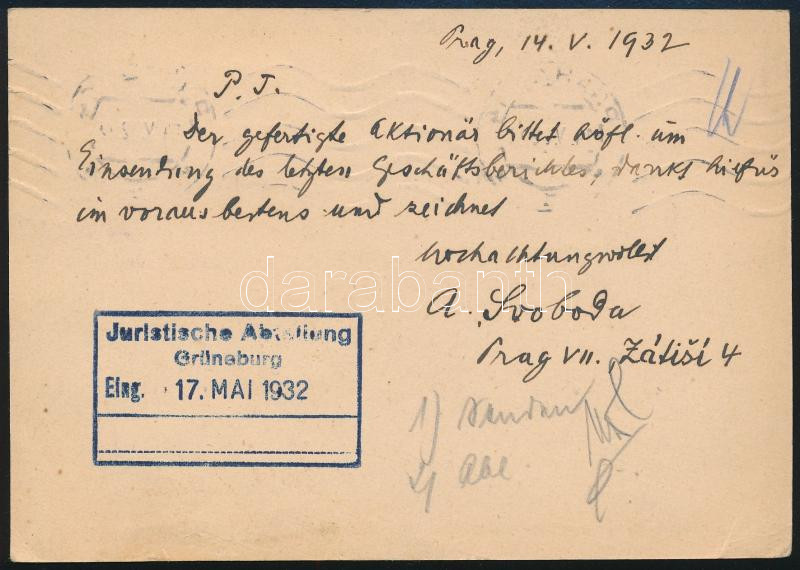 Prag, 14. V. 1932
P. T.
Der gefertigte Aktionär bittet höfl. um
Einsendung des letzten Geschäftsberichtes, dankt hiefür
im voraus bestens und zeichnet
hochachtungsvollst
A. Svoboda
Prag VII. Zátiší 4
darabanth
Juristische Abteilung
Grüneburg
Eing. 17. MAI 1932
1) senden
2)